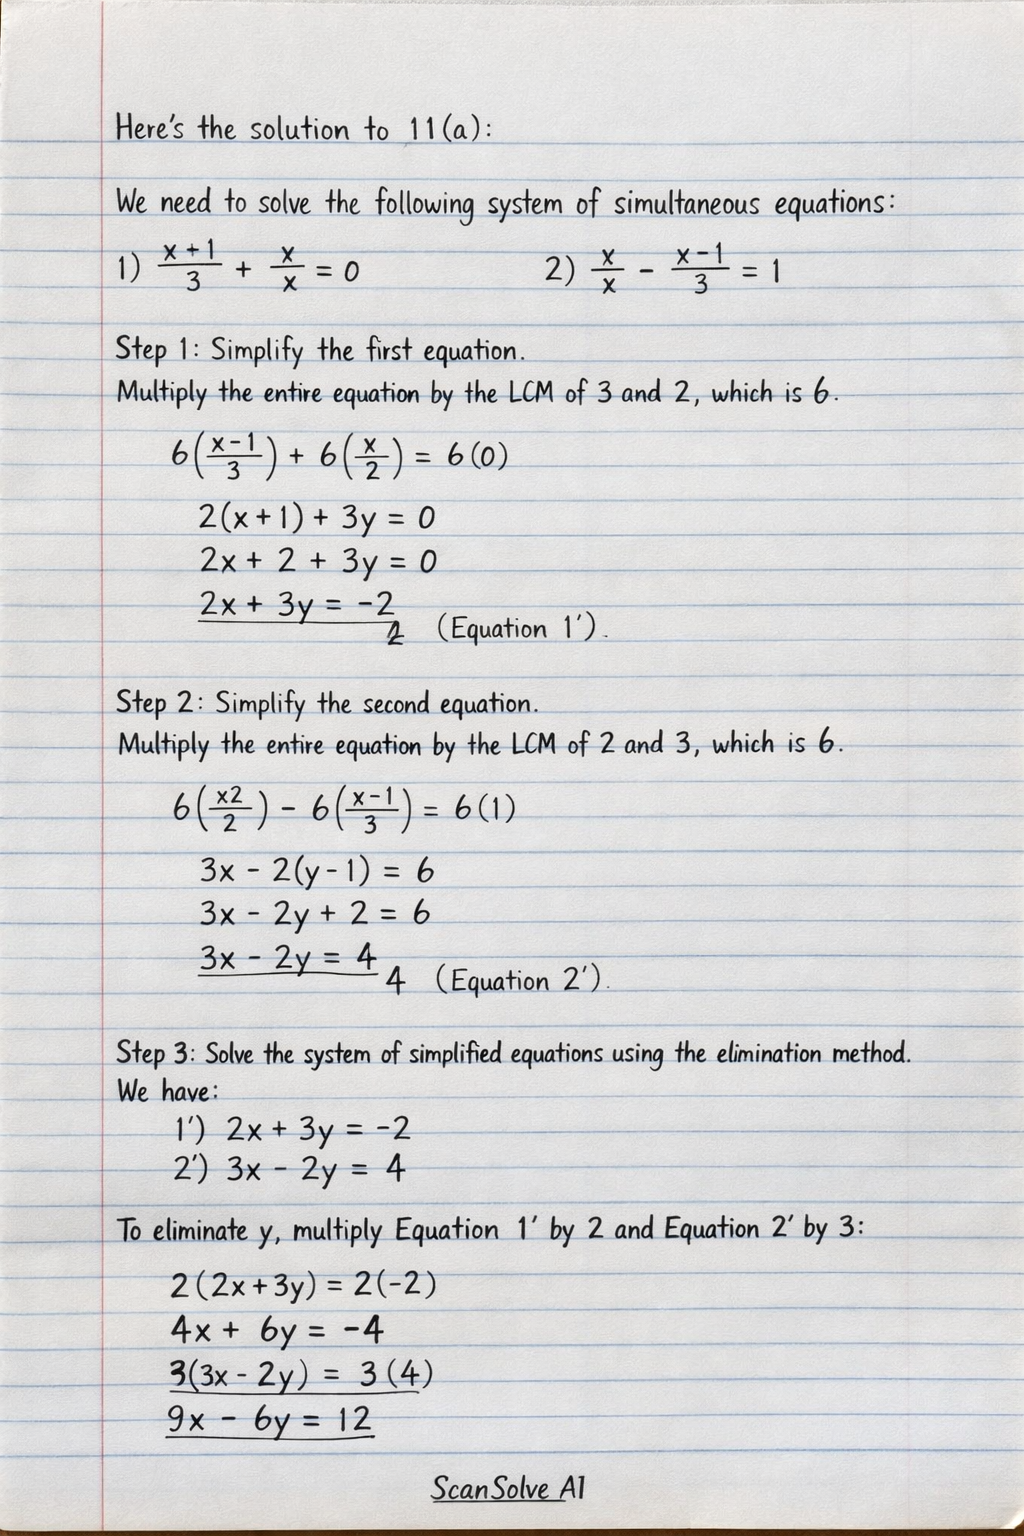 Here's the solution to 11(a):
We need to solve the following system of simultaneous equations:
1) (x+1)/3 + x/x = 0    2) x/x - (x-1)/3 = 1
Step 1: Simplify the first equation.
Multiply the entire equation by the LCM of 3 and 2, which is 6.
6((x-1)/3) + 6(x/2) = 6(0)
2(x+1) + 3y = 0
2x + 2 + 3y = 0
2x + 3y = -2
2 (Equation 1').
Step 2: Simplify the second equation.
Multiply the entire equation by the LCM of 2 and 3, which is 6.
6(x2/2) - 6((x-1)/3) = 6(1)
3x - 2(y-1) = 6
3x - 2y + 2 = 6
3x - 2y = 4
4 (Equation 2').
Step 3: Solve the system of simplified equations using the elimination method.
We have:
1') 2x + 3y = -2
2') 3x - 2y = 4
To eliminate y, multiply Equation 1' by 2 and Equation 2' by 3:
2(2x+3y) = 2(-2)
4x + 6y = -4
3(3x - 2y) = 3(4)
9x - 6y = 12
ScanSolve AI